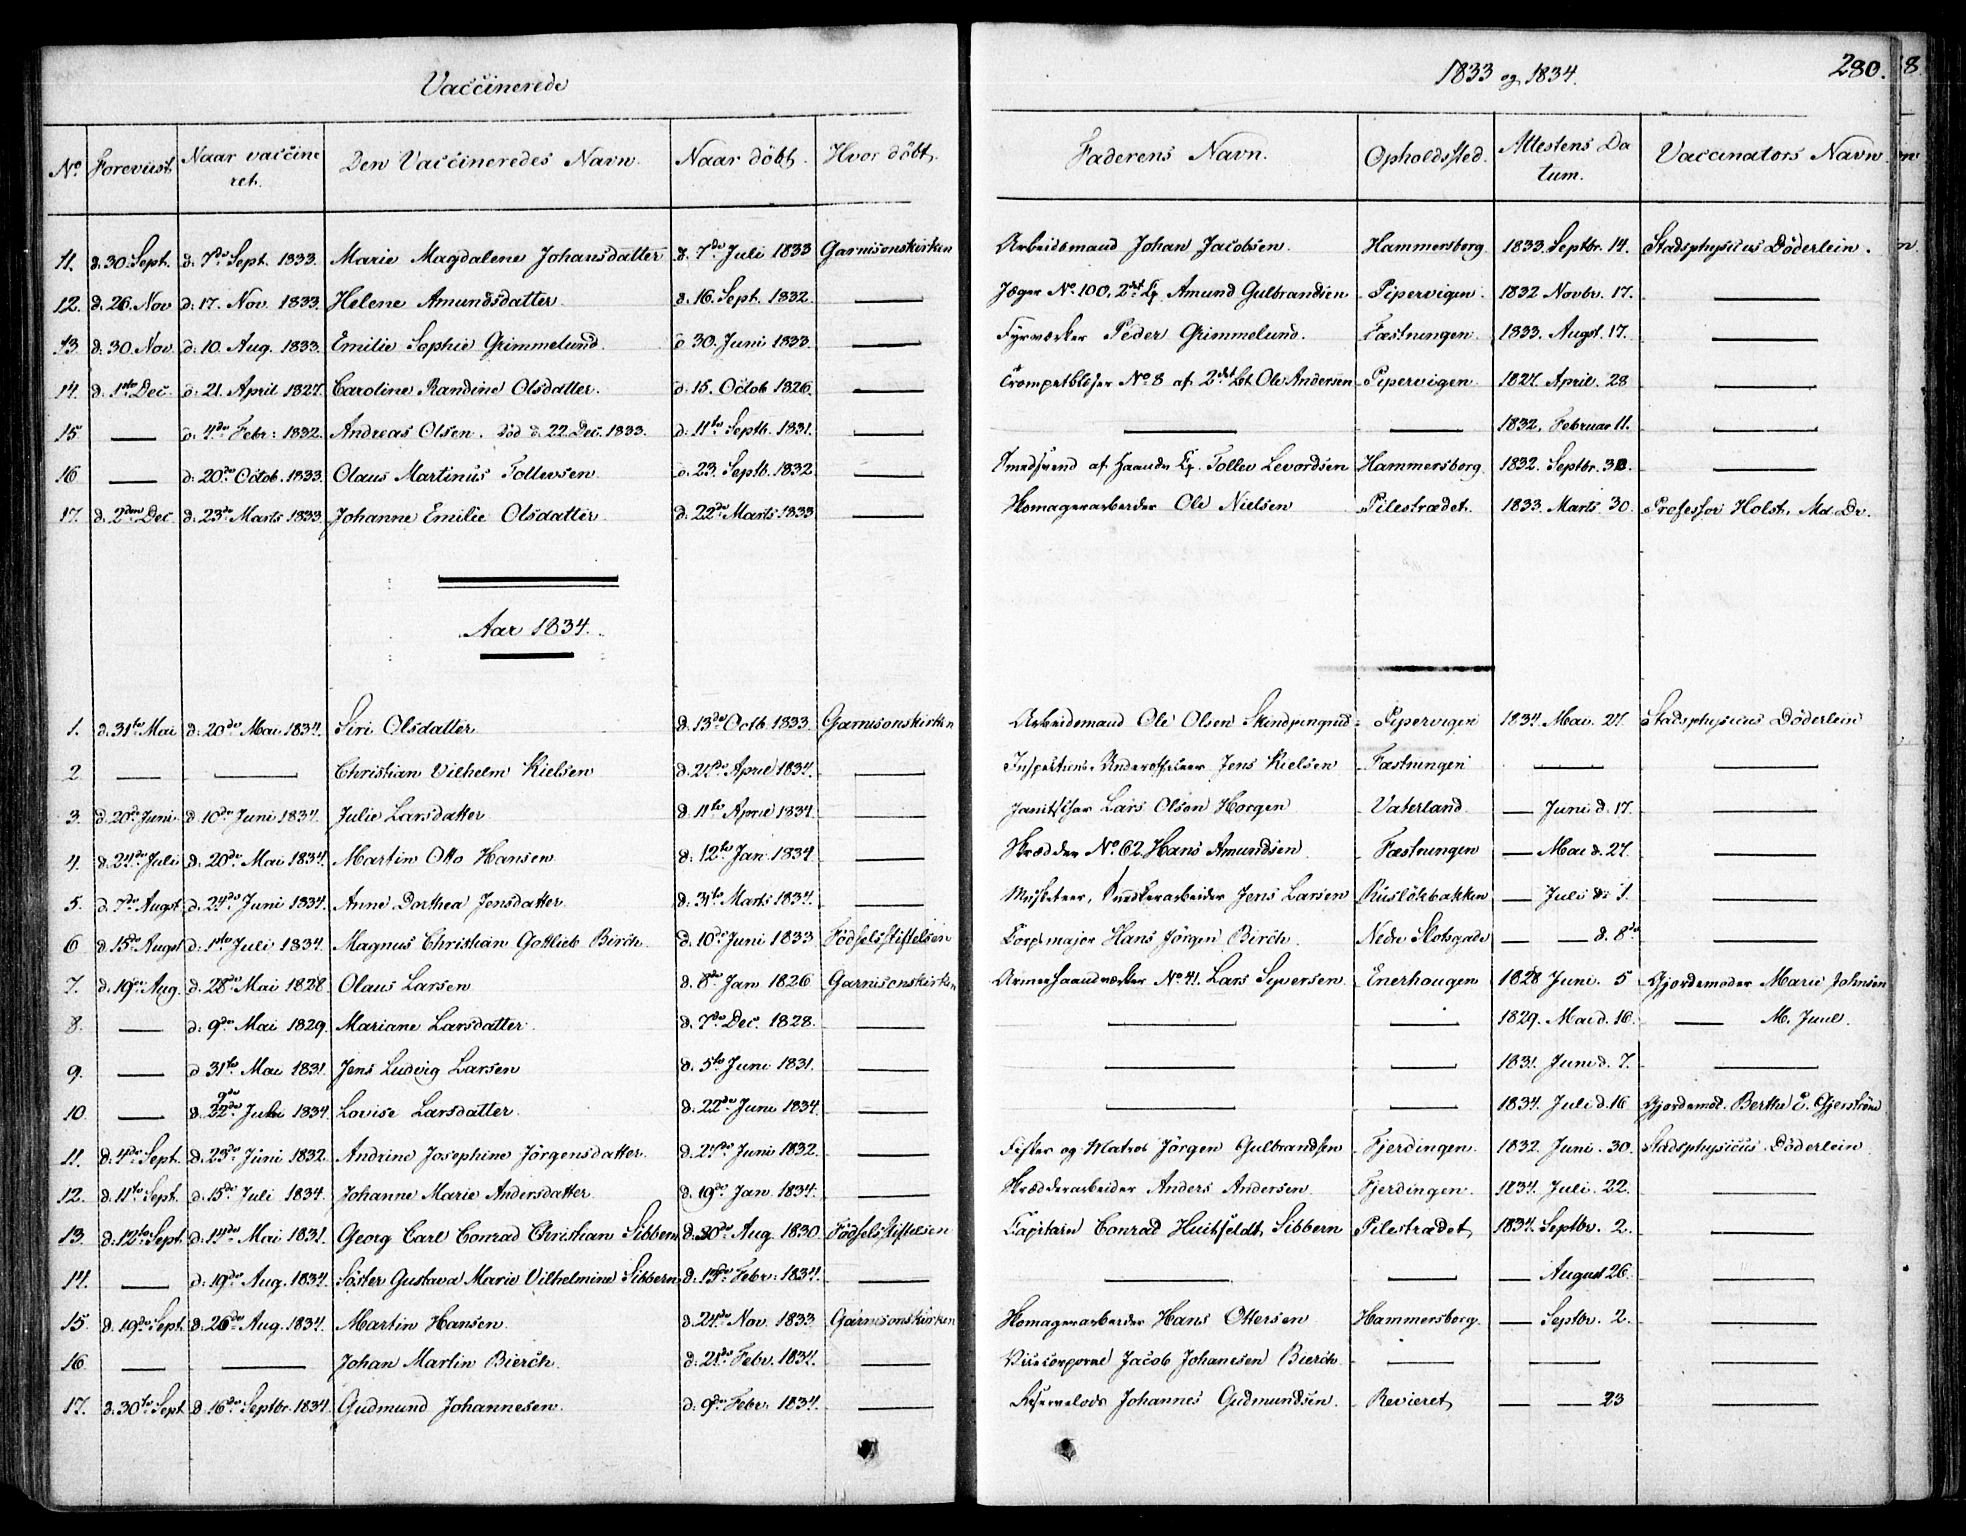 Vaccinerede
1833 og 1834.
280.
No. Foreviist Naar vaccineret. Den Vaccineredes Navn. Naar döbt. Hvor döbt. Faderens Navn. Opholdssted. Attestens Datum. Vaccinators Navn
11. d. 30. Sept. d. 7de Sept. 1833. Marie Magdalene Johansdatter d. 7de Juli 1833 Garnisonskirken Arbeidsmand Johan Jacobsen. Hammersborg 1833. Septbr. 14. Stadsphysicus Döderlein.
12. d. 26. Nov d. 17. Nov. 1833. Helene Amundsdatter d. 16. Sept. 1832. — Jæger No. 100, 2det Cp. Amund Gulbrandsen Pipervigen. 1832 Novbr. 17. —
13 d. 30. Nov. d. 10. Aug. 1833. Emilie Sophie Grimmelund d. 30. Juni 1833. — Fyrværker Peder Grimmelund. Fæstningen. 1833. Augst. 17. —
14. d. 1ste Dec. d. 21. April 1827. Caroline Randine Olsdatter. d. 15. Octob. 1826. — Trompetblæser No. 8 af 2det Ole Andersen Pipervigen. 1827. April. 28 —
15 — d. 4de Febr: 1832. Andreas Olsen. död d. 22. Dec. 1833. d. 11te Septb. 1831. — — — 1832. Februar 11. —
16 — d. 20de Octob. 1833. Olaus Martinus Tollevsen d. 23. Septb. 1832 — Smedsvend af Tollev Levordsen Hammersborg. 1832. Septbr. —
17. d. 2den Dec d. 23de Marts 1833. Johanne Emilie Olsdatter d. 22de Marts 1833 — Skomagerarbeider Ole Nielsen Pilestrædet. 1833. Marts. 30. Professor Holst, Md. Dr.
Aar 1834.
1. d. 31te Mai d. 20de Mai 1834. Siri Olsdatter d. 13de Octb. 1833. Garnisonskirken Arbeidsmand Ole Olsen Pipervigen 1834. Mai. 27. Stadsphysicus Döderlein
2 — — Christian Vilhelm Kielsen d. 24de April 1834. — Inspections-Underofficeer Jens Kielsen Fæstningen — —
3. d. 20de Juni d. 10de Juni 1834. Julie Larsdatter d. 11te April 1834. — Janitschar Lars Olsen Horgen Vaterland. — Juni d. 17. —
4. d. 24de Juli d. 20de Mai 1834. Martin Otto Hansen d. 12te Jan. 1834. — Skrædder No. 62. Hans Amundsen Fæstningen — Mai d. 27. —
5. d. 7de Augst. d. 24de Juni 1834. Anne Dorthea Jensdatter. d. 31te Marts 1834. — Musketeer, Jens Larsen Ruslökbakken — Juli d: 1. —
6 d. 15de Augst d. 1ste Juli 1834. Magnus Christian Gottlieb Birch. d. 10de Juni 1833 Födselsstiftelsen Corpsmajor Hans Jörgen Birch. Nedre Slotsgade — — d. 8de —
7. d. 19de Aug. d. 28de Mai 1828. Olaus Larsen d. 8de Jan 1826 Garnisonskirken No. 41. Lars Syversen Enerhougen 1828 Juni. 5 Gjordemoder Marie Johnsen
8. — d. 9de Mai 1829. Mariane Larsdatter. d. 7de Dec. 1828. — — — 1829. Mai d. 16. — M. Juul.
9. — d 31te Mai 1831. Jens Ludvig Larsen d. 5te Juni 1831. — — — 1831. Juni d. 7. —
10. — d. 9de Juli 1834. Lovise Larsdatter d. 22de Juni 1834. — — — 1834. Juli d. 16 Gjordemod. Berthe C.
11. d: 4de Sept. d. 23de Juni 1832. Andrine Josephine Jörgensdatter. d. 24de Juni 1832. — Fisker og Matros Jörgen Gulbrandsen Fjerdingen. 1832. Juni. 30. Stadsphysicus Döderlein
12. d. 11te Sept. d. 15de Juli 1834. Johanne Marie Andersdatter d. 19de Jan. 1834. — Skrædderarbeider Anders Andersen Fjerdingen. 1834. Juli. 22. —
13. d. 12te Sept. d. 14de Mai 1831. Georg Carl Conrad Christian Sibbern d. 20de Aug. 1830. Födselsstiftelsen Capitain Conrad Huitfeldt, Sibbern Pilestrædet, 1834. Septbr. 2. —
14. — d. 19de Aug. 1834. Söster Gustava Marie Vilhelmine Sibbern d. 13de Febr. 1834. — — — — August 26. —
15. d. 19de Sept. d. 26de Aug. 1834. Martin Hansen. d. 24de Nov. 1833 Garnisonskirken Skomagerarbeider Hans Ottersen Hammersborg. — Septbr. 2. —
16 — — Johan Martin Bierch. d. 21de Febr. 1834. — Vicecorporal Jacob Johanesen Bierch — — —
17. d. 30te Sept. d. 16de Septbr. 1834 Gudmund Johannesen. d. 9de Febr. 1834. — Johannes Gudmundsen. Revieret, — — 23 —